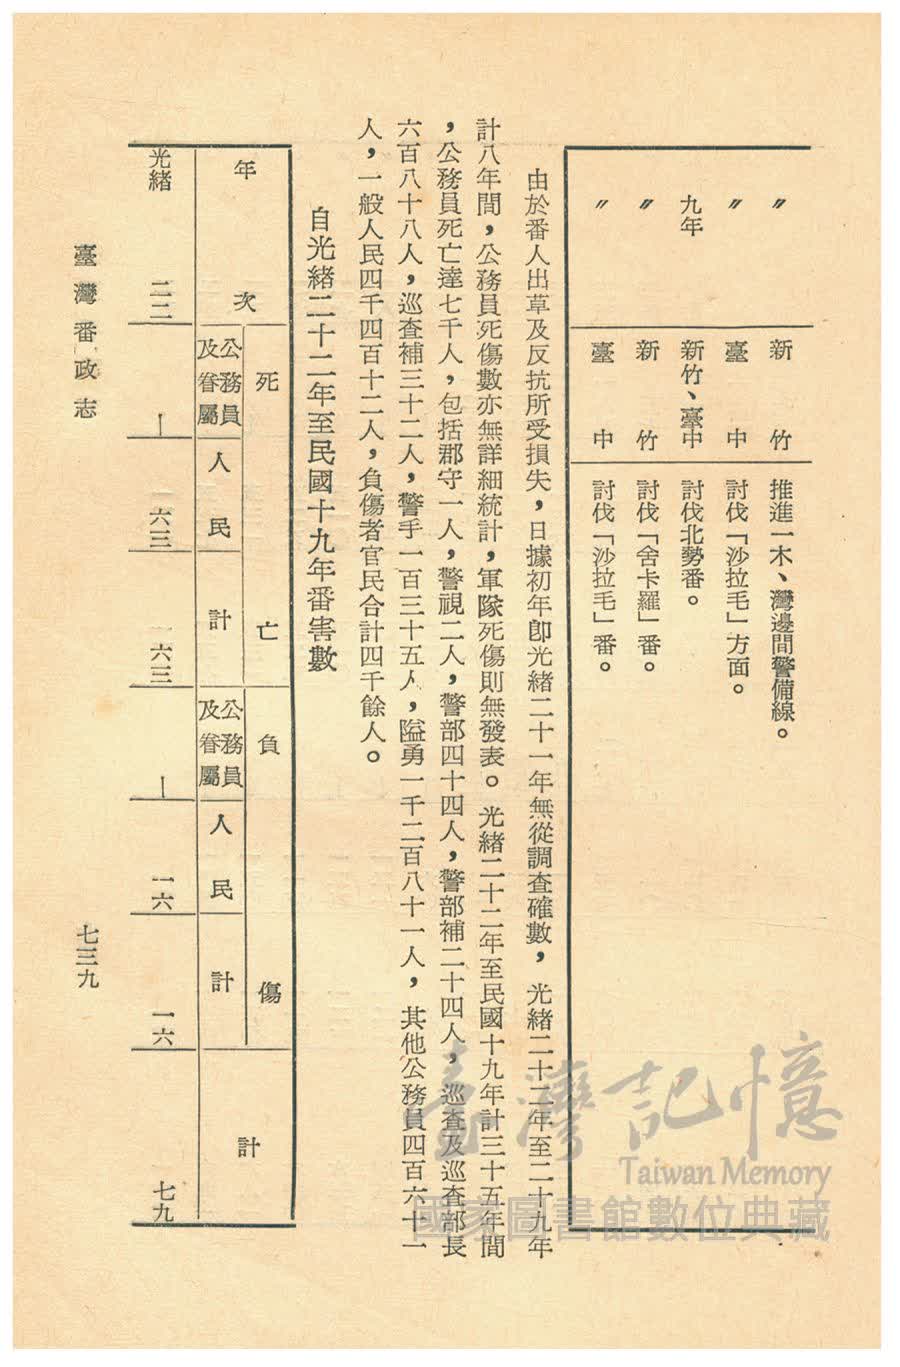 〃 新竹 推進一木、灣邊間警備線。
〃 臺中 討伐「沙拉毛」方面。
九年 新竹、臺中 討伐北勢番。
〃 新竹 討伐「舍卡羅」番。
〃 臺中 討伐「沙拉毛」番。
由於番人出草及反抗所受損失，日據初年卽光緒二十一年無從調查確數，光緒二十二年至二十九年
計八年間，公務員死傷數亦無詳細統計，軍隊死傷則無發表。光緒二十二年至民國十九年計三十五年間
，公務員死亡達七千人，包括郡守一人，警視二人，警部四十四人，警部補二十四人，巡查及巡查部長
六百八十八人，巡查補三十二人，警手一百三十五人，隘勇一千二百八十一人，其他公務員四百六十一
人，一般人民四千四百十二人，負傷者官民合計四千餘人。
自光緒二十二年至民國十九年番害數
年次 死亡 負傷 計
公務員及眷屬 人民 計 公務員及眷屬 人民 計
光緒 二二 — 六三 六三 — 一六 一六 七九
臺灣番政志
七三九
臺灣記憶
Taiwan Memory
國家圖書館數位典藏